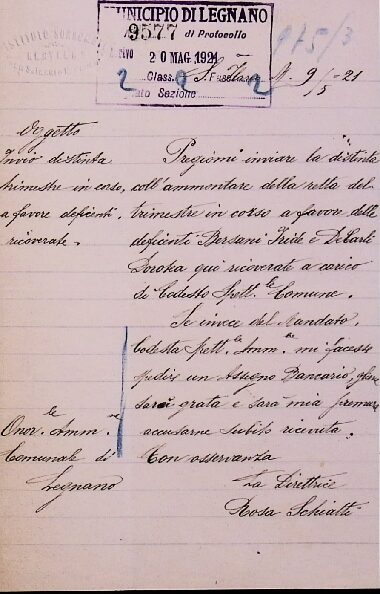 MUNICIPIO DI LEGNANO
9577 di Protocollo
Arrivo 20 MAG. 1921
Class. Fasc.
2 2 2
Sezione
975/3
9/5 - 21
Oggetto
Invio distinta
trimestre in corso,
a favore deficienti
ricoverate.
Pregiomi inviare la distinta
coll'ammontare della retta del
trimestre in corso a favore delle
deficienti Bersani e
qui ricoverate a carico
di Codesto Spett.le Comune.
Se invece del Mandato,
Codesta Spett.le Amm.ne mi facesse
spedir un Assegno Bancario,
sarò grata e sarà mia premura
accusarne subito ricevuta.
Con osservanza
La Direttrice
Rosa Schiatti
Onor.le Amm.ne
Comunale di
Legnano